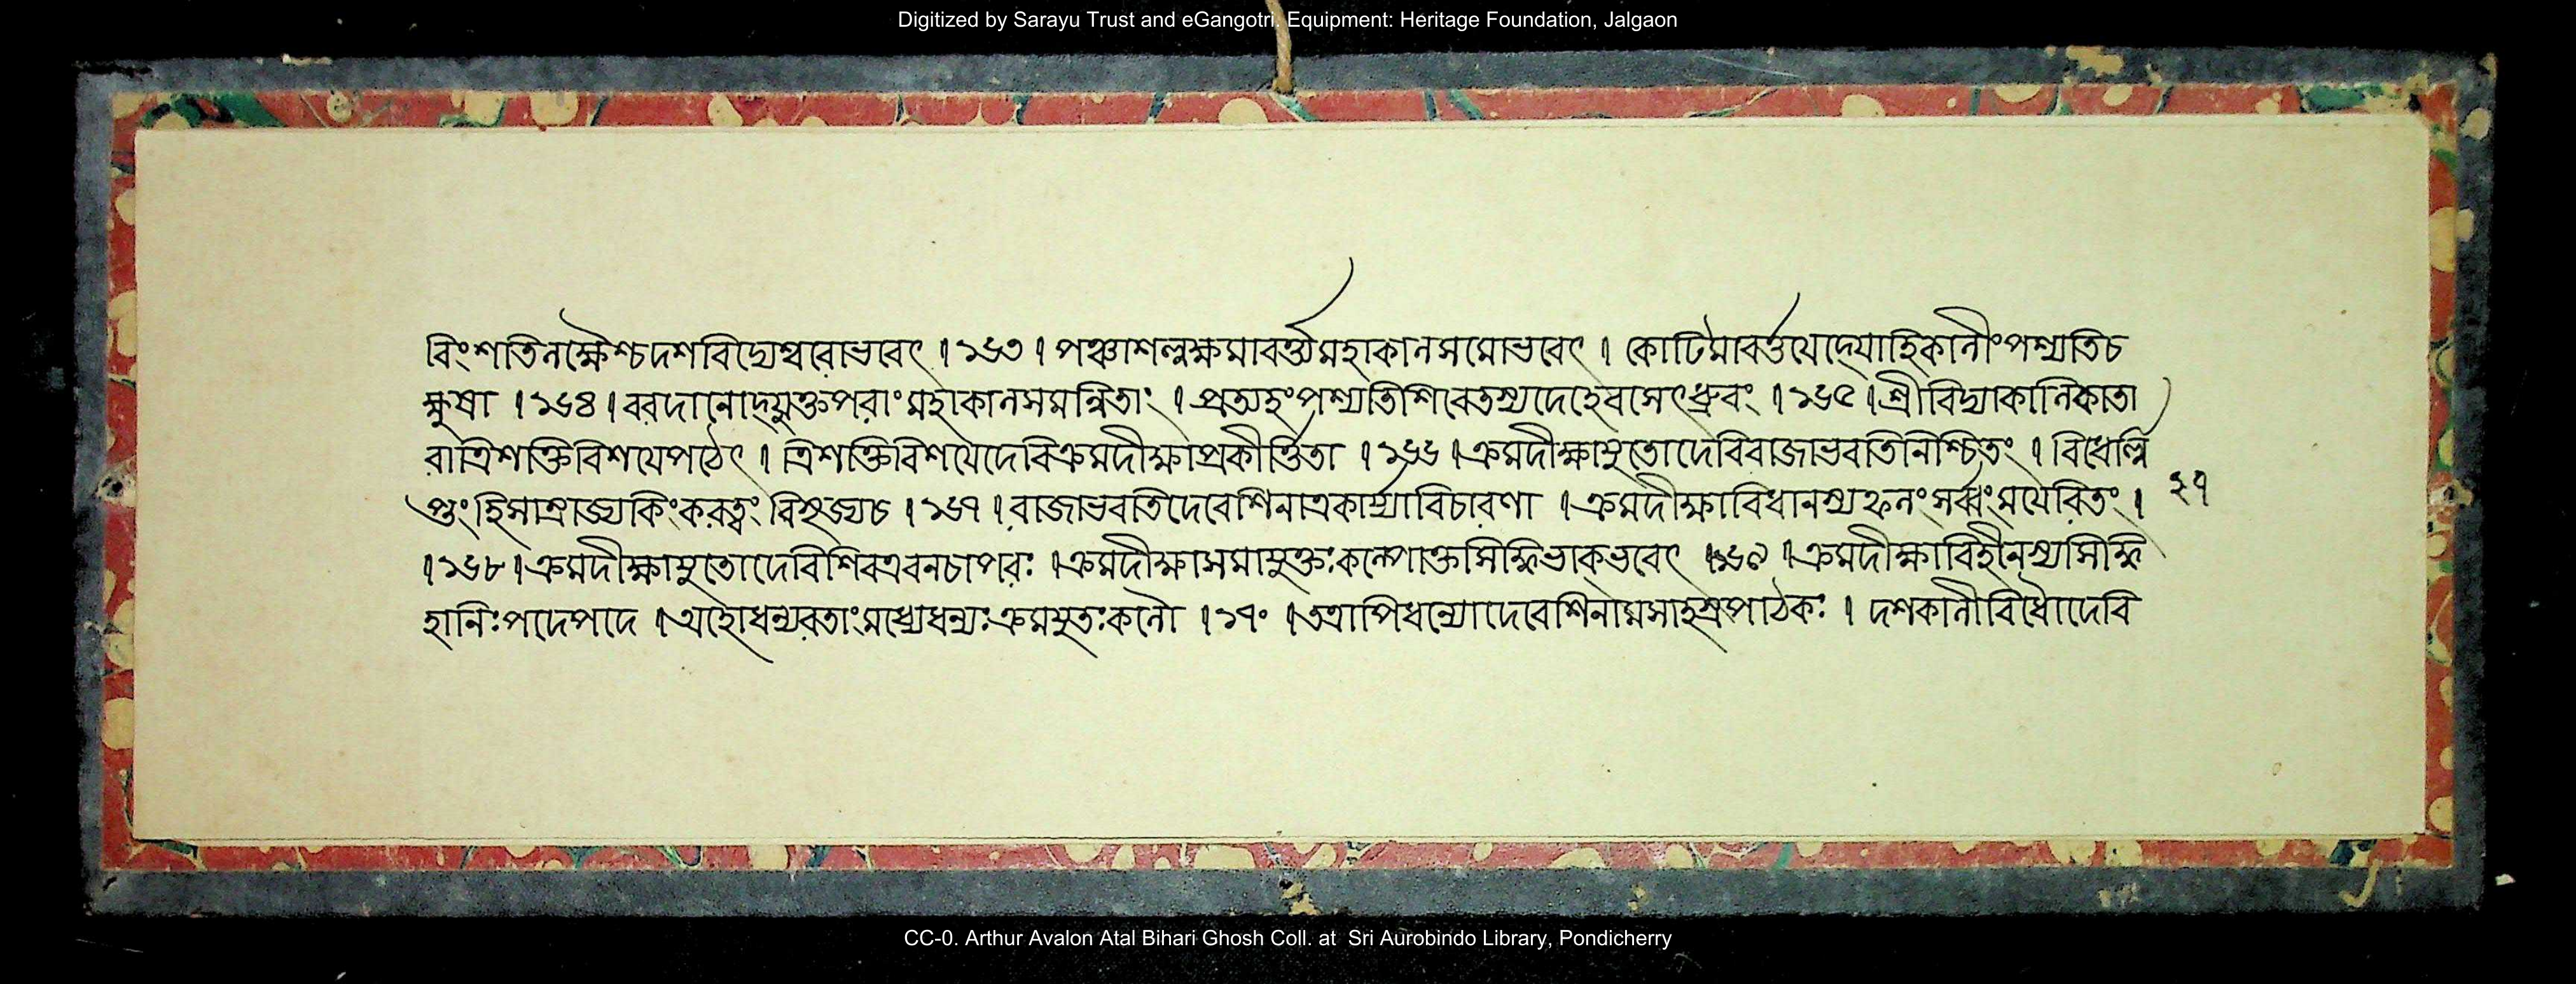 Digitized by Sarayu Trust and eGangotri. Equipment: Heritage Foundation, Jalgaon
বিংশতিলক্ষৈশ্চদশবিদ্যেশ্বরোভবেৎ । ১৬৩ । পঞ্চাশল্লক্ষমাবর্ত্ত্যমহাকালসমোভবেৎ । কোটিমাবর্ত্তয়েদ্যোহিকালীংপশ্যতিচ
ক্ষুষা । ১৬৪ । বরদানোদ্যুক্তপরাংমহাকালসমন্বিতাং । প্রত্যহংপশ্যতিশিবেতস্যদেহেবসেৎধ্রুবং । ১৬৫ । শ্রীবিদ্যাকালিকাতা
রাত্রিশক্তিবিশয়েপঠেৎ । ত্রিশক্তিবিশয়েদেবিক্রমদীক্ষাপ্রকীর্ত্তিতা । ১৬৬ । ক্রমদীক্ষাযুতোদেবিরাজাভবতিনিশ্চিতং । বিধের্লি
প্তংহিসাম্রাজ্যকিংকরত্বংবিসৃজ্যচ । ১৬৭ । রাজাভবতিদেবেশিনাত্রকার্য্যাবিচারণা । ক্রমদীক্ষাবিধানস্যফলংসর্ব্বংময়েরিতং ।
। ১৬৮ । ক্রমদীক্ষাযুতোদেবীশিবএবনচাপরঃ । ক্রমদীক্ষাসমাযুক্তঃকল্পোক্তসিদ্ধিভাক্ভবেৎ । ১৬৯ । ক্রমদীক্ষাবিহীনস্যসিদ্ধি
হানিঃপদেপদে । অহোধন্যবতাংমধ্যেধন্যঃক্রমযুতঃকলৌ । ১৭০ । তত্রাপিধন্যোদেবেশিনামসাহস্রপাঠকঃ । দশকালীবিধৌদেবি
২৭
CC-0. Arthur Avalon Atal Bihari Ghosh Coll. at Sri Aurobindo Library, Pondicherry